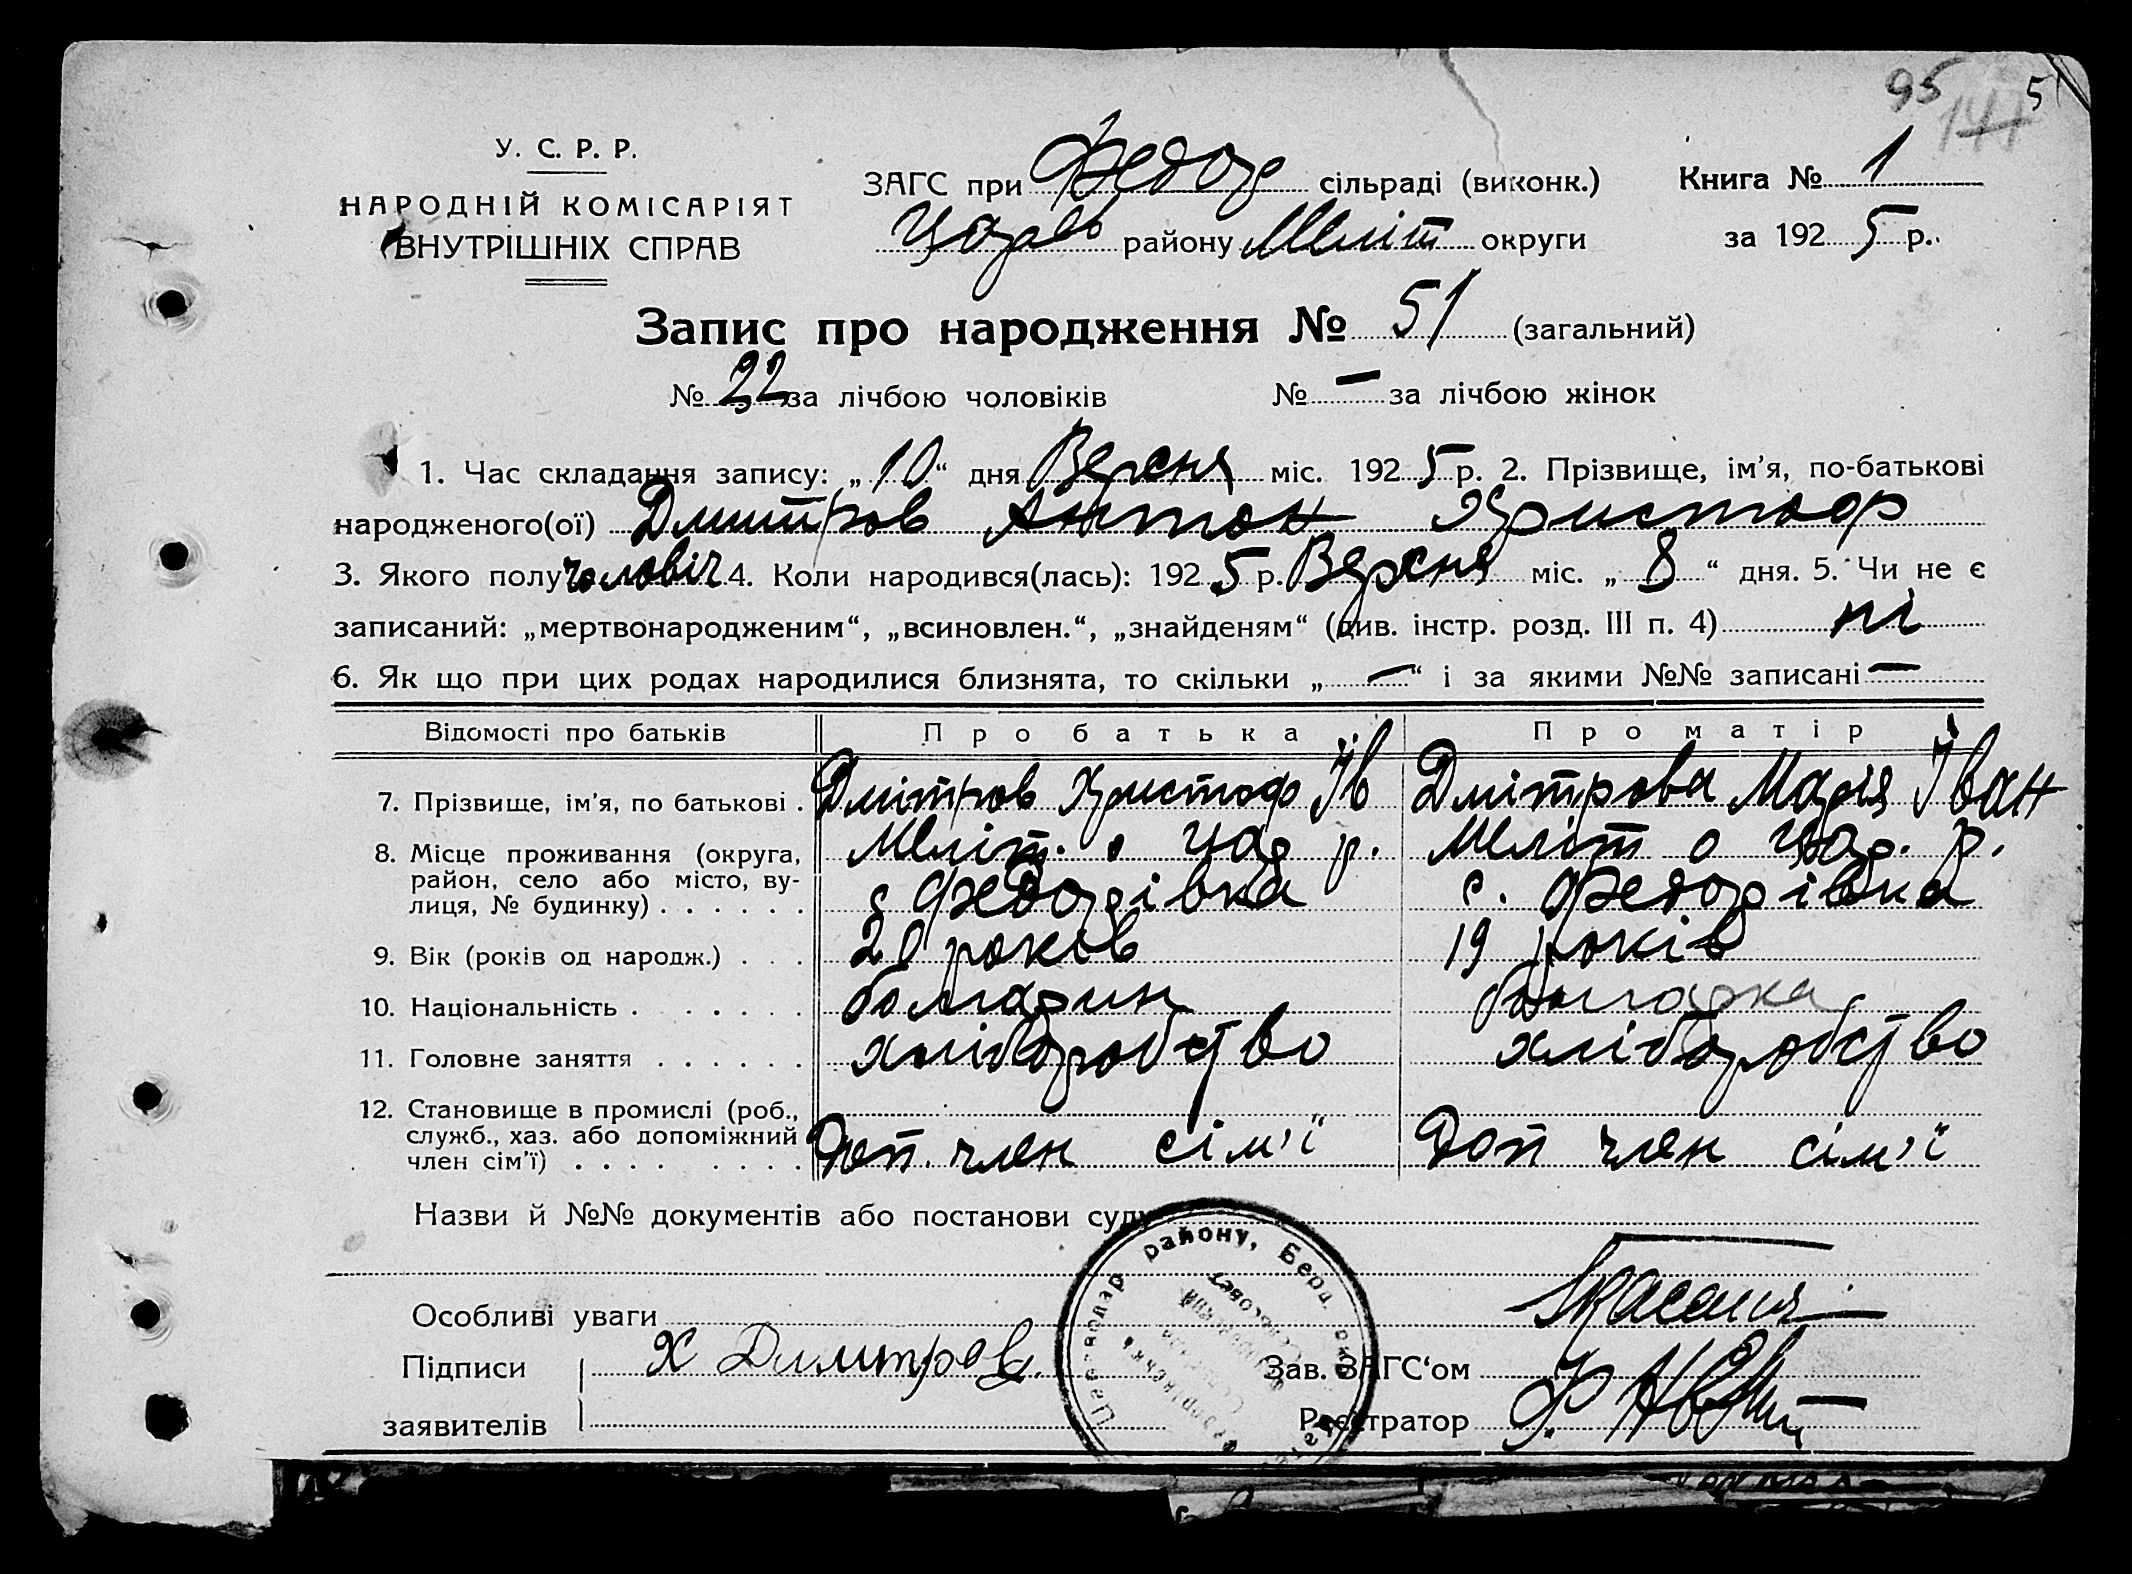 95 5
147
У. С. Р. Р.
НАРОДНІЙ КОМІСАРІЯТ
ВНУТРІШНІХ СПРАВ
ЗАГС при Федор сільраді (виконк.) Книга № 1
Цар району Меліт округи за 1925 р.
Запис про народження № 51 (загальний)
№ 22 за лічбою чоловіків № — за лічбою жінок
1. Час складання запису: „10“ дня Вересня міс. 1925 р. 2. Прізвище, ім’я, по-батькові
народженого(ої) Дмитров Антон Христофор
3. Якого полу чоловіч 4. Коли народився(лась): 1925 р. Вересня міс. „8“ дня. 5. Чи не є
записаний: „мертвонародженим“, „всиновлен.“, „знайденям“ (див. інстр. розд. III п. 4) ні
6. Як що при цих родах народилися близнята, то скільки „—“ і за якими №№ записані —
Відомості про батьків Про батька Про матір
7. Прізвище, ім’я, по батькові . Дмітров Христоф Ів Дмітрова Марія Іван
8. Місце проживання (округа, район, село або місто, вулиця, № будинку) . . . . . . Меліт. о Цар р. Меліт о Цар. р.
с Федорівка с. Федорівка
9. Вік (років од народж.) . . . 20 років 19 років
10. Національність . . . . . . . болгарин болгарка
11. Головне заняття . . . . . . хліборобство хліборобство
12. Становище в промислі (роб., служб., хаз. або допоміжний член сім’ї) . . . . . . . . Доп. член сім’ї Доп член сім’ї
Назви й №№ документів або постанови суду
Особливі уваги
Підписи Х Димитров. Зав. ЗАГС‘ом
заявителів Реєстратор
району, Берд.